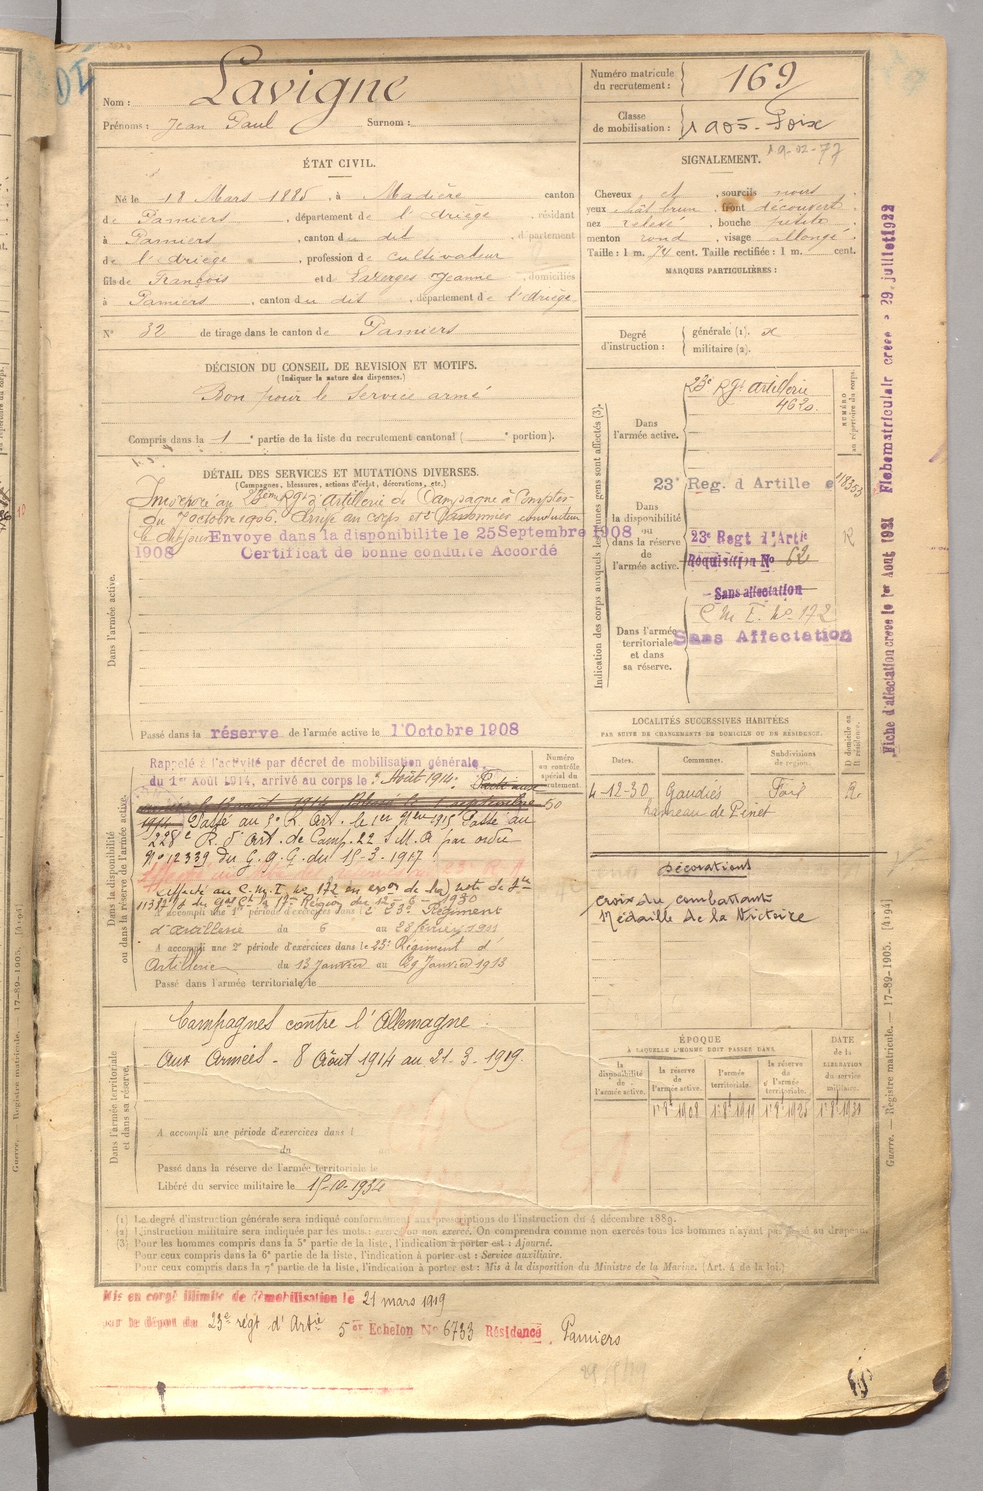 Nom : Lavigne
Prénoms : Jean Paul Surnom :
Numéro matricule du recrutement : 169
Classe de mobilisation : 1905 - Foix
19-02-77
ÉTAT CIVIL.
Né le 18 Mars 1885, à Madière canton
de Pamiers, département de l'Ariège, résidant
à Pamiers, canton du dit, département
de l'Ariège, profession de Cultivateur
fils de François et de Lazerges Jeanne, domiciliés
à Pamiers, canton du dit, département de l'Ariège
N° 32 de tirage dans le canton de Pamiers
SIGNALEMENT.
Cheveux et, sourcils noirs
yeux chât brun, front découvert
nez relevé, bouche petite
menton rond, visage allongé
Taille : 1 m. 74 cent. Taille rectifiée : 1 m. cent.
MARQUES PARTICULIÈRES :
Degré d'instruction : générale (1).
militaire (2).
DÉCISION DU CONSEIL DE REVISION ET MOTIFS.
(Indiquer la nature des dispenses.)
Bon pour le service armé
Compris dans la 1 e partie de la liste du recrutement cantonal ( e portion).
DÉTAIL DES SERVICES ET MUTATIONS DIVERSES.
(Campagnes, blessures, actions d'éclat, décorations, etc.)
Dans l'armée active.
Incorporé au 23ème Rgt d'Artillerie de Campagne à Compter
du 7 octobre 1906. Arrivé au corps et 2e Canonnier conducteur
le dit jour Envoye dans la disponibilite le 25 Septembre 1908
1908 Certificat de bonne conduite Accordé
Passé dans la réserve de l'armée active le 1 Octobre 1908
Indication des corps auxquels les jeunes gens sont affectés (3).
NUMÉRO au répertoire du corps.
Dans l'armée active.
23e Rgt Artillerie
4620.
Dans la disponibilité ou dans la réserve de l'armée active.
23e Reg. d Artille e
23e Regt d'Artie
Réquisition No 62
Sans affectation
Dans l'armée territoriale et dans sa réserve.
C M I. No 172
Sans Affectation
LOCALITÉS SUCCESSIVES HABITÉES
PAR SUITE DE CHANGEMENTS DE DOMICILE OU DE RÉSIDENCE.
Dates. Communes. Subdivisions de région. D domicile ou R résidence.
4-12-30 Gaudiès Foix R.
hameau de Pinet
Décorations
croix du combattant
Médaille de la Victoire
Dans la disponibilité ou dans la réserve de l'armée active.
Numéro au contrôle spécial du recrutement.
50
Rappelé à l'activité par décret de mobilisation générale
du 1er Août 1914, arrivé au corps le Août 1914.
1914. Passé au R. Art. le 1er 1915 Passé au
228e R. d'Art. de Camp. 22 S.M.A par ordre
No 12339 du G.Q.G. du 15-3-1917
Affecté au C.M.I. No 172 en note de
Région du 12-6-1930
A accompli une 1re période d'exercices dans le 23e Régiment
d'artillerie du 6 au 28 février 1911
A accompli une 2e période d'exercices dans le 23e Régiment d'
Artillerie du 13 Janvier au 29 Janvier 1913
Passé dans l'armée territoriale le
Dans l'armée territoriale et dans sa réserve.
Campagnes contre l'Allemagne
Aux Armées - 8 Août 1914 au 21-3-1919.
A accompli une période d'exercices dans l
du
Passé dans la réserve de l'armée territoriale le
Libéré du service militaire le 15-10-1934
ÉPOQUE
À LAQUELLE L'HOMME DOIT PASSER DANS
la disponibilité de l'armée active. la réserve de l'armée active. l'armée territoriale. la réserve de l'armée territoriale.
DATE de la LIBÉRATION du service militaire.
(1) Le degré d'instruction générale sera indiqué conformément aux prescriptions de l'instruction du 4 décembre 1889.
(2) L'instruction militaire sera indiquée par les mots : exercé ou non exercé. On comprendra comme non exercés tous les hommes n'ayant pas passé au drapeau.
(3) Pour les hommes compris dans la 5e partie de la liste, l'indication à porter est : Ajourné.
Pour ceux compris dans la 6e partie de la liste, l'indication à porter est : Service auxiliaire.
Pour ceux compris dans la 7e partie de la liste, l'indication à porter est : Mis à la disposition du Ministre de la Marine. (Art. 4 de la loi.)
Mis en congé illimité de démobilisation le 21 mars 1919
par le dépôt du 23e régt d'Artie 5 er Echelon No 6733 Résidence Pamiers
Fiche d'affectation créée le 1er Août 1921 Fiche matriculaire créée le 29 juillet 1922
Guerre. — Registre matricule. — 17-89-1905. [4194]